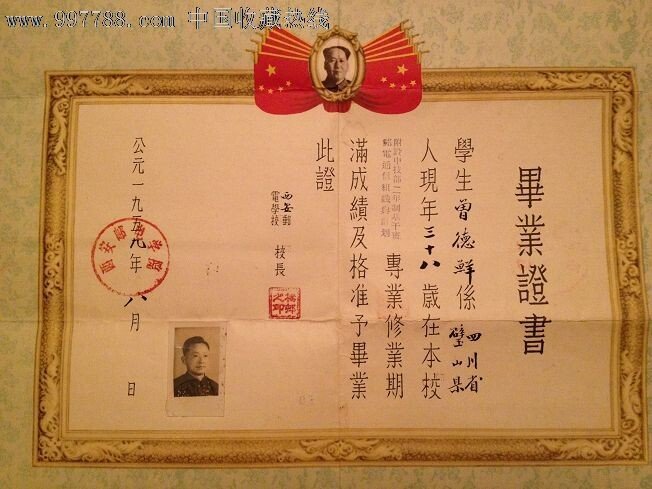 www.997788.com 中国收藏热线
畢業證書
學生曾德鮮係四川省璧山县
人現年三十八歲在本校
附設中技部二年制在干班
郵電通信組織與計划
專業修業期
滿成績及格准予畢業
此證
西安郵電學校 校長
公元一九五九年八月 日